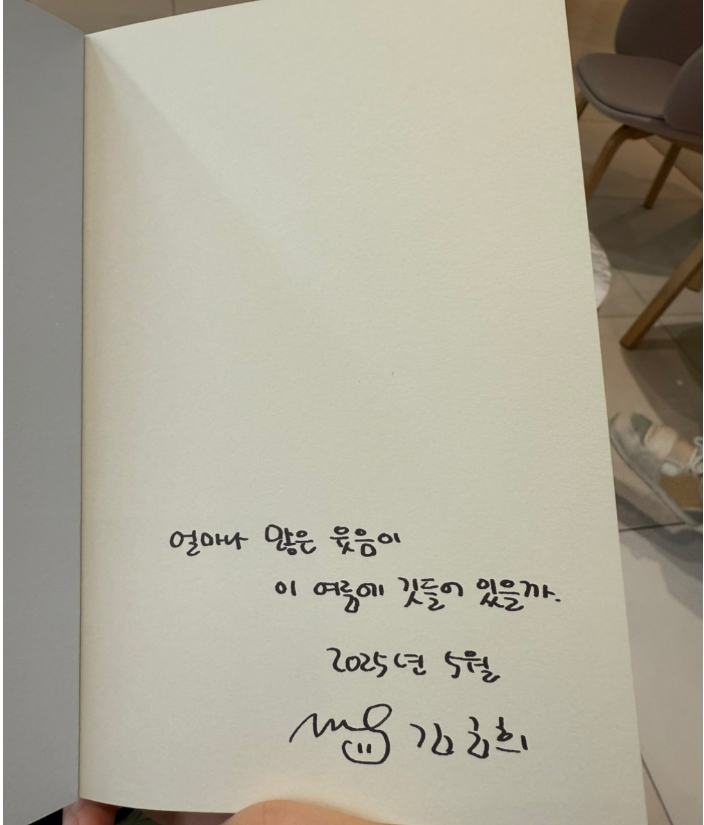 얼마나 많은 웃음이
이 여름에 깃들어 있을까.
2025년 5월
김금희